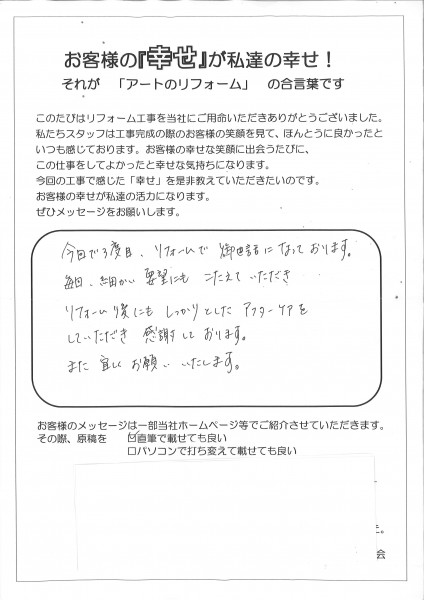 お客様の『幸せ』が私達の幸せ！
それが 「アートのリフォーム」 の合言葉です
このたびはリフォーム工事を当社にご用命いただきありがとうございました。
私たちスタッフは工事完成の際のお客様の笑顔を見て、ほんとうに良かったと
いつも感じております。お客様の幸せな笑顔に出会うたびに、
この仕事をしてよかったと幸せな気持ちになります。
今回の工事で感じた「幸せ」を是非教えていただきたいのです。
お客様の幸せが私達の活力になります。
ぜひメッセージをお願いします。
今回で3度目、リフォームで御世話になっております。
毎回、細かい要望にもこたえていただき
リフォーム後にもしっかりとしたアフターケアを
していただき感謝しております。
また宜しくお願いいたします。
お客様のメッセージは一部当社ホームページ等でご紹介させていただきます。
その際、原稿を ☑直筆で載せても良い
□パソコンで打ち変えて載せても良い
会